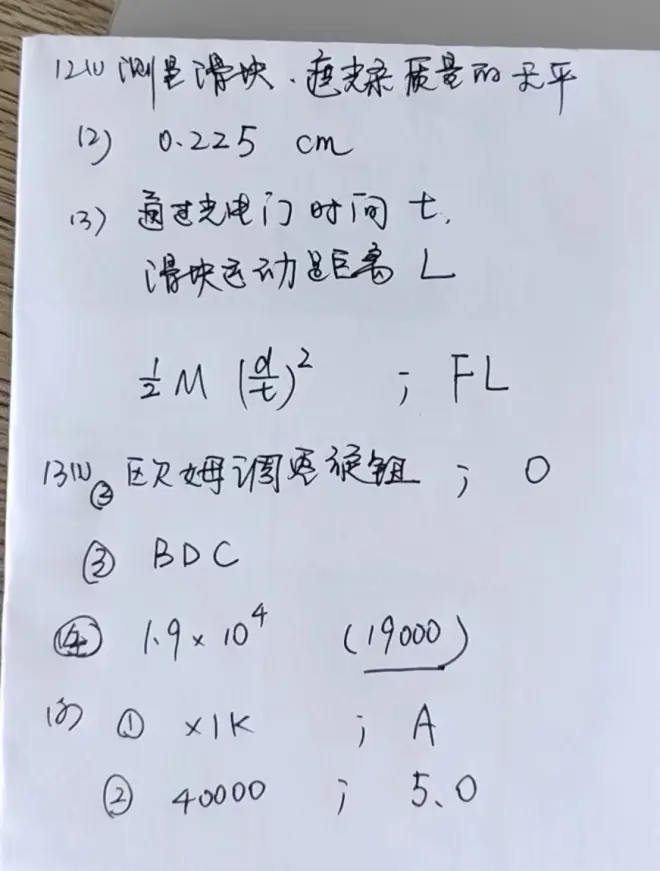 12(1) 测量滑块、遮光条质量的天平
(2) 0.225 cm
(3) 通过光电门时间 t,
滑块运动距离 L
½ M (d/t)² ; FL
13(1) ② 欧姆调零旋钮 ; 0
③ BDC
④ 1.9×10⁴ (19000)
(2) ① ×1K ; A
② 40000 ; 5.0